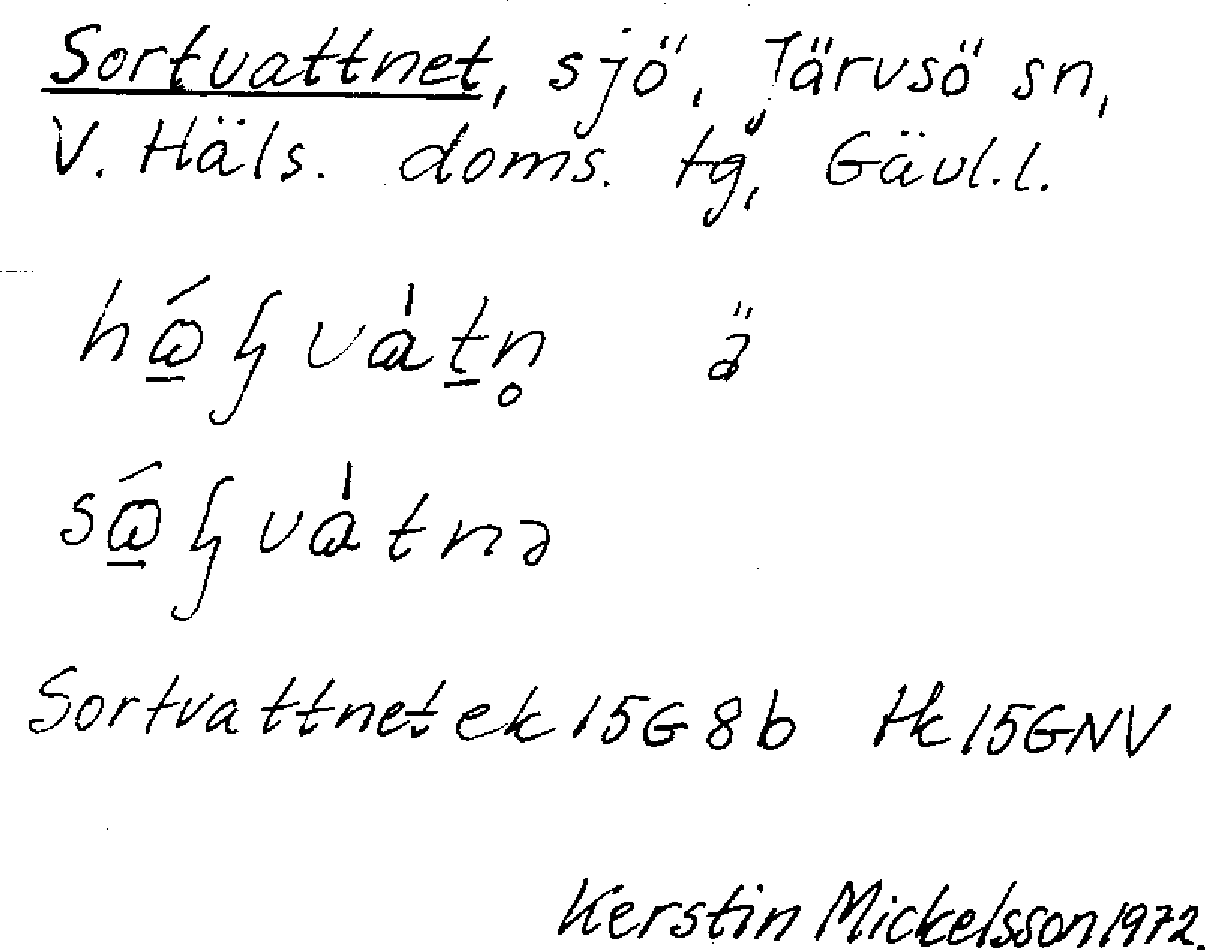 Sortvattnet, sjö, Järvsö sn,
V. Häls. doms. tg, Gävl.l.
Sortvattnet ek 15G 8b tk 15GNV
Kerstin Mickelsson 1972.